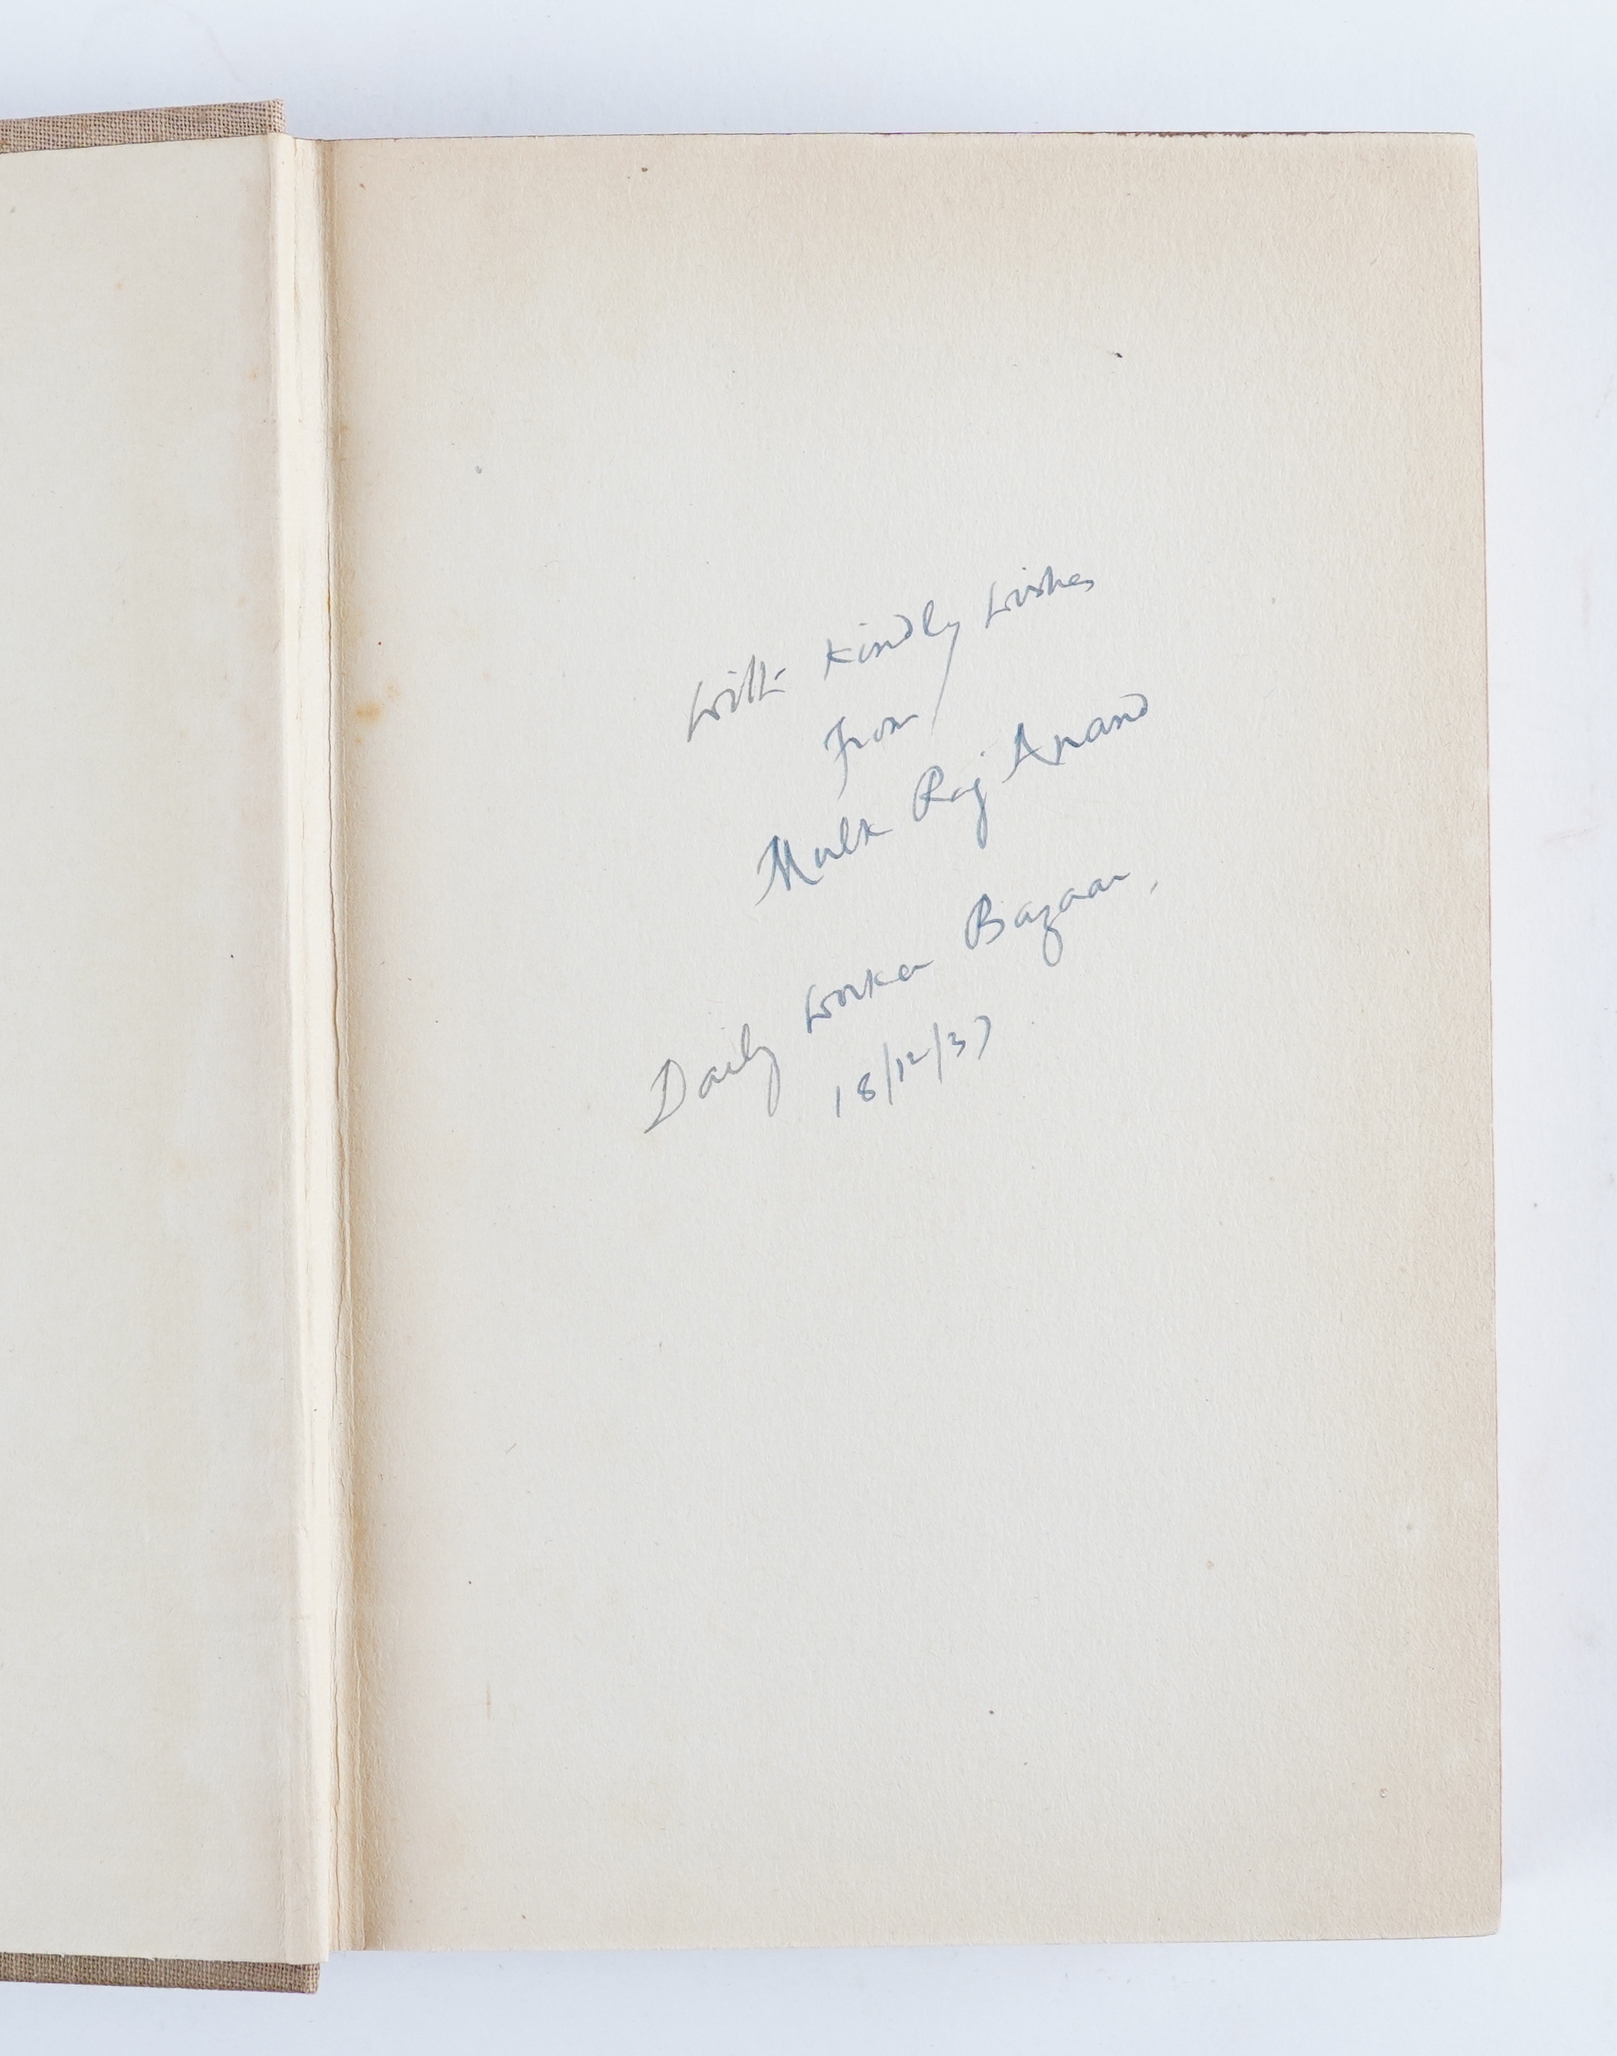 With kindly wishes
From
Mulk Raj Anand
Daily Worker Bazaar,
18/12/37